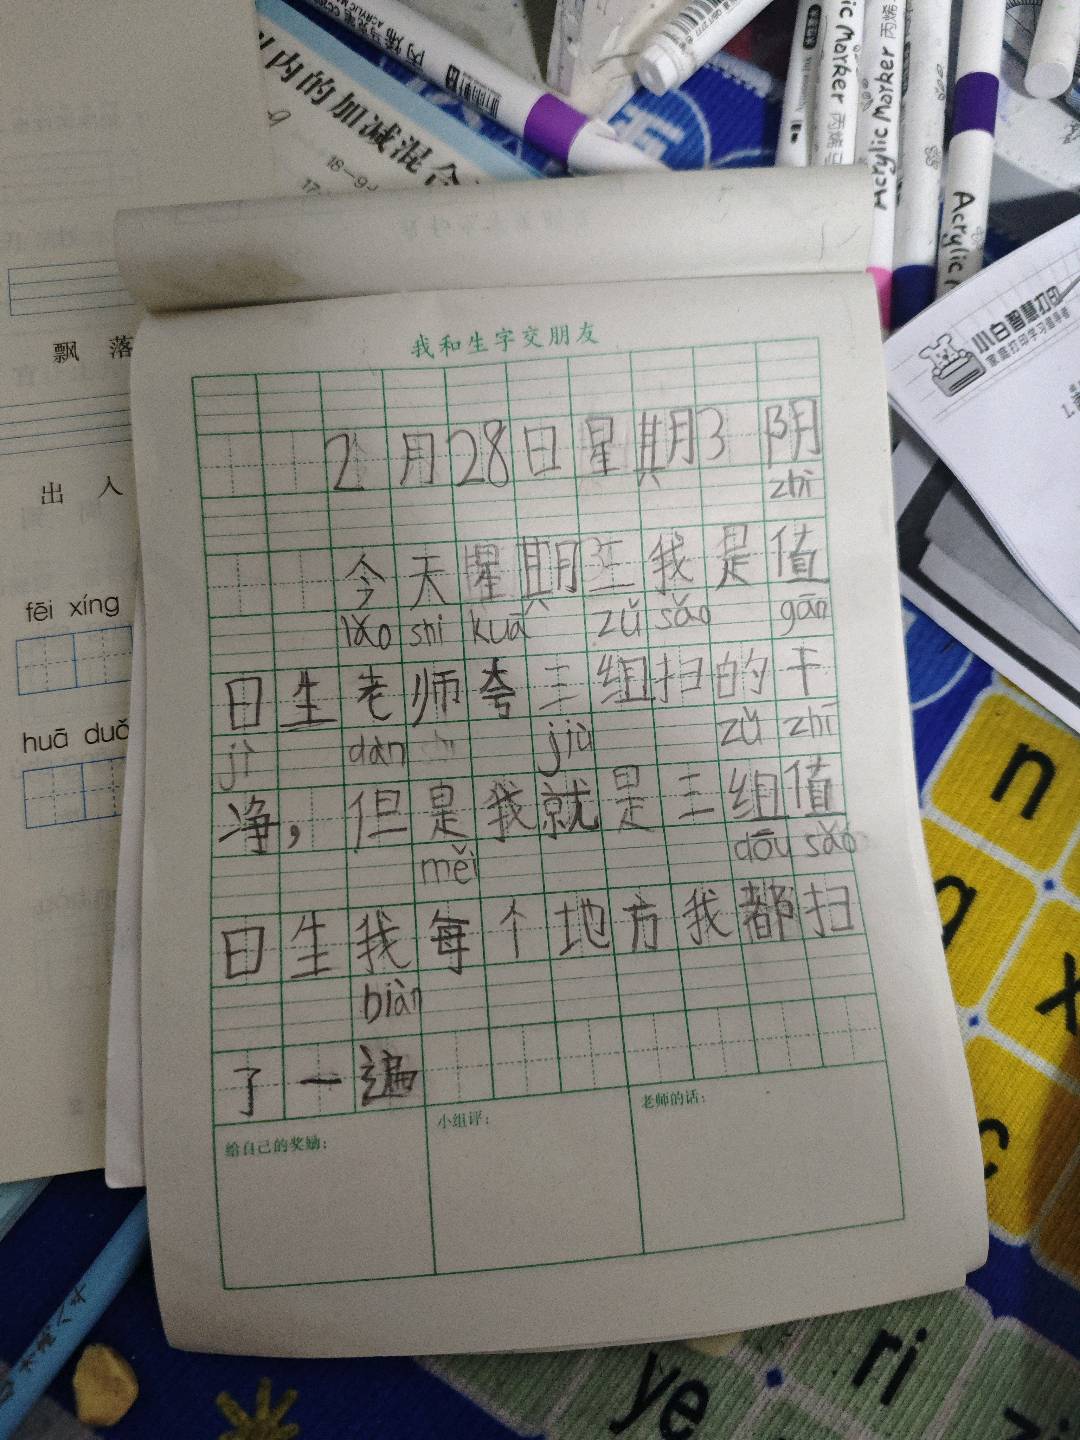 丙烯
ACRYLIC MARKER
ic Marker 丙烯马
Acrylic Marker 丙烯
Acrylic M
内的加减混合
18-9
17
飘 落
出 入
fēi xíng
huā duǒ
小白智慧打印
家庭打印学习显神奇
1.
我和生字交朋友
2月28日星期3 阴
zhí
今天星期三我是值
lǎo shi kuā zǔ sǎo gān
日生老师夸三组扫的干
jì dàn jiù zǔ zhí
净，但是我就是三组值
měi dōu sǎo
日生我每个地方我都扫
biàn
了一遍
给自己的奖励：
小组评：
老师的话：
n
x
c
ri
ye
zi